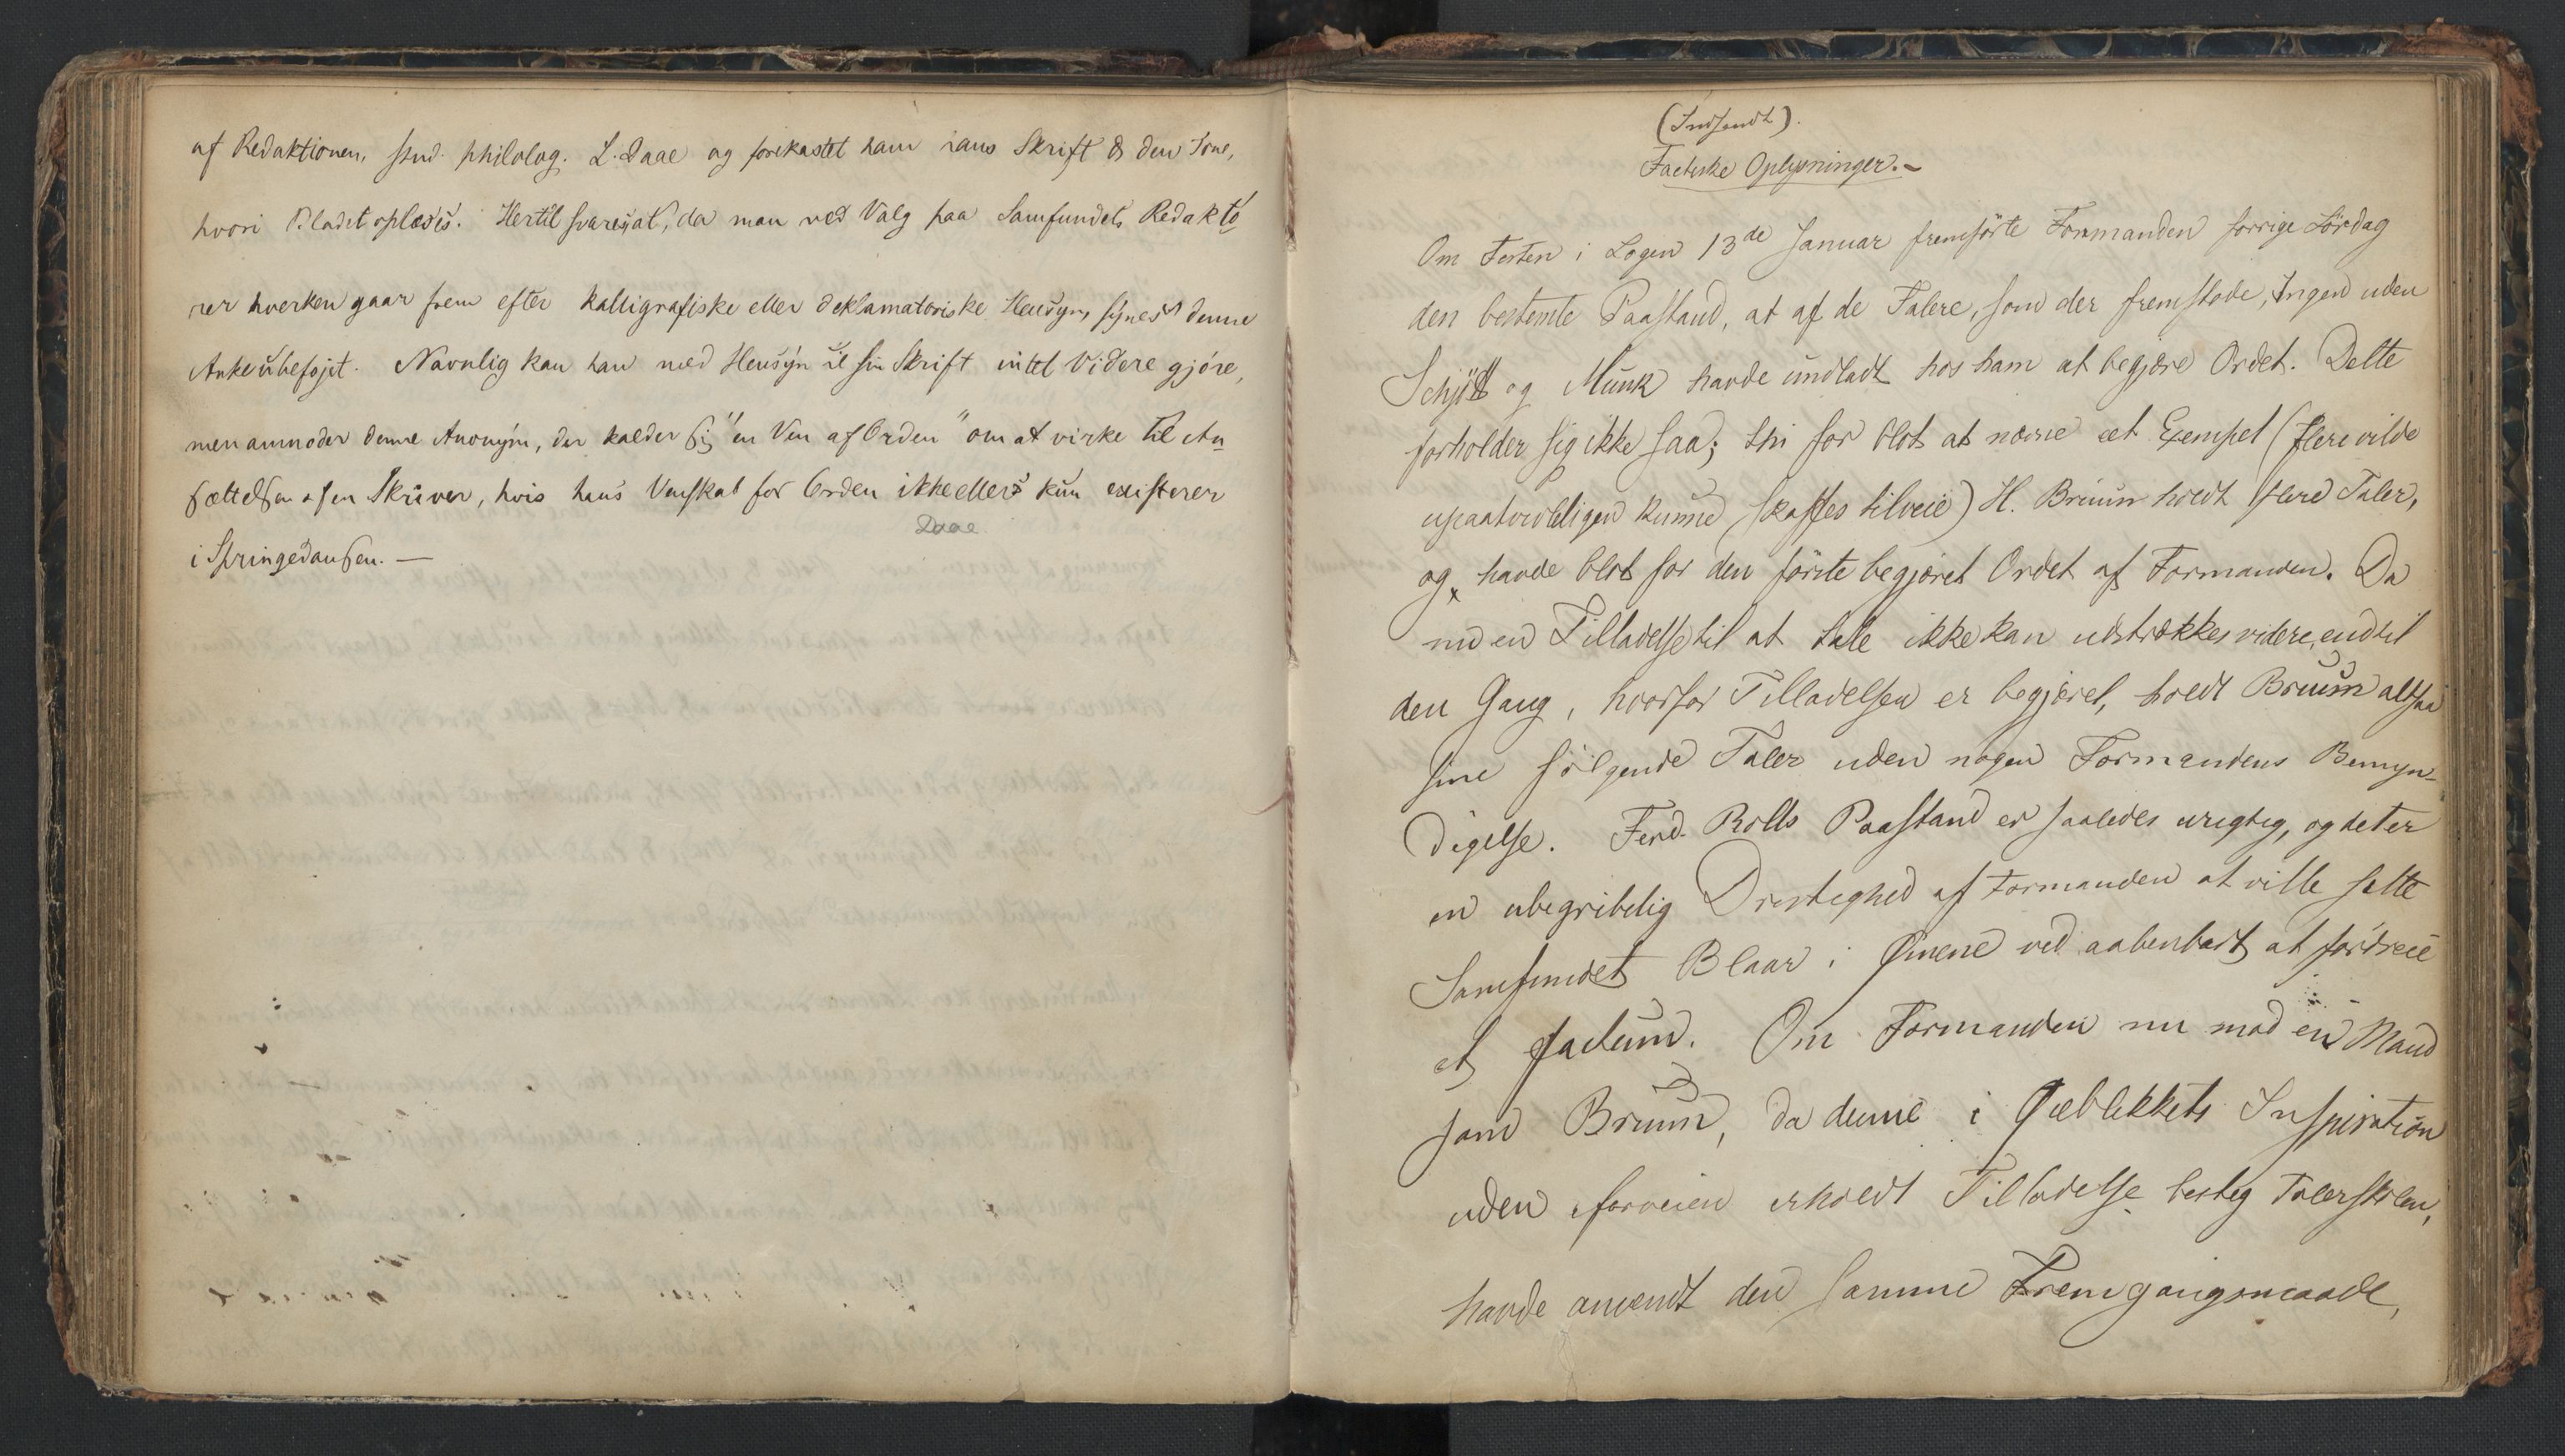 af Redaktionen, stud. philolog. L. Daae og forekastet ham hans Skrift & den Tone,
hvori Bladet oplæses. Hertil svares, at, da man ved Valg paa Samfundets Redaktö-
rer hverken gaar frem efter kalligrafiske eller deklamatoriske Hensyn, synes denne
Anke ubeføjet. Navnlig kan han med Hensyn til sin Skrift intet Videre gjøre,
men anmoder denne Anonym, der kalder sig "en Ven af Orden" om at virke til An-
sættelsen af en Skriver, hvis hans Venskab for Orden ikke ellers kun existerer
i Springedansen. —
Daae
(Indsendt).
Factiske Oplysninger. -
Om Festen i Logen 13de Januar fremförte Formanden forrige Lördag
den bestemte Paastand, at af de Talere, som der fremstode, Ingen uden
Schjött og Munk havde undladt hos ham at begjære Ordet. Dette
forholder sig ikke saa; thi for blot at nævne eet Exempel (flere vilde
upaatvivleligen kunne skaffes tilveie) H. Bruun holdt flere Taler,
og havde blot for den förste begjæret Ordet af Formanden. Da
nu en Tilladelse til at tale ikke kan udstrækkes videre, end til
den Gang, hvorfor Tilladelsen er begjæret, holdt Bruun altsaa
sine fölgende Taler uden nogen Formandens Bemyn-
digelse. Ferd. Rolls Paastand er saaledes urigtig, og det er
en ubegribelig Dristighed af Formanden at ville sætte
Samfundet Blaar i Øinene ved aabenbart at fordreie
et factum. Om Formanden nu mod en Mand
som Bruun, da denne i Øieblikkets Inspiration
uden iforveien erholdt Tilladelse besteg Talerstolen,
havde anvendt den samme Fremgangsmaade,